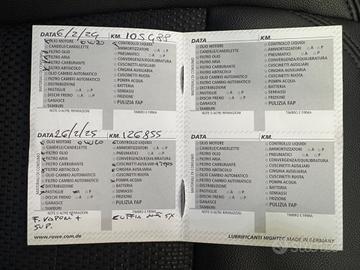 DATA 6/2/24 KM. 105988
OLIO MOTORE 0W20 CONTROLLO LIQUIDI
CANDELE/CANDELETTE AMMORTIZZATORI
FILTRO OLIO PNEUMATICI A P
FILTRO ARIA CONVERGENZA/EQUILIBRATURA
FILTRO CARBURANTE CINGHIA AUSILIARIA
FILTRO ABITACOLO CUSCINETTI RUOTA
OLIO CAMBIO AUTOMATICO POMPA ACQUA
FILTRO CAMBIO AUTOMATICO BATTERIA
DISTRIBUZIONE SEMIASSI
PASTIGLIE A P FILTRO POLLINE
DISCHI FRENO A P PULIZIA FAP
GANASCE
TAMBURI
NOTE O ALTRE RIPARAZIONI TIMBRO E FIRMA
DATA KM.
OLIO MOTORE CONTROLLO LIQUIDI
CANDELE/CANDELETTE AMMORTIZZATORI
FILTRO OLIO PNEUMATICI A P
FILTRO ARIA CONVERGENZA/EQUILIBRATURA
FILTRO CARBURANTE CINGHIA AUSILIARIA
FILTRO ABITACOLO CUSCINETTI RUOTA
OLIO CAMBIO AUTOMATICO POMPA ACQUA
FILTRO CAMBIO AUTOMATICO BATTERIA
DISTRIBUZIONE SEMIASSI
PASTIGLIE A P
DISCHI FRENO A P PULIZIA FAP
GANASCE
TAMBURI
NOTE O ALTRE RIPARAZIONI TIMBRO E FIRMA
DATA 26/2/25 KM. 126855
OLIO MOTORE 0W20 CONTROLLO LIQUIDI
CANDELE/CANDELETTE AMMORTIZZATORI
FILTRO OLIO PNEUMATICI A P
FILTRO ARIA CONVERGENZA/EQUILIBRATURA
FILTRO CARBURANTE CINGHIA AUSILIARIA
FILTRO ABITACOLO
OLIO CAMBIO AUTOMATICO POMPA ACQUA
FILTRO CAMBIO AUTOMATICO BATTERIA
DISTRIBUZIONE SEMIASSI
PASTIGLIE A P
DISCHI FRENO A P PULIZIA FAP
GANASCE
TAMBURI
NOTE O ALTRE RIPARAZIONI TIMBRO E FIRMA
SUP.
SX
www.rowe.com.de
DATA KM.
OLIO MOTORE CONTROLLO LIQUIDI
CANDELE/CANDELETTE AMMORTIZZATORI
FILTRO OLIO PNEUMATICI A P
FILTRO ARIA CONVERGENZA/EQUILIBRATURA
FILTRO CARBURANTE CINGHIA AUSILIARIA
FILTRO ABITACOLO CUSCINETTI RUOTA
OLIO CAMBIO AUTOMATICO POMPA ACQUA
FILTRO CAMBIO AUTOMATICO BATTERIA
DISTRIBUZIONE SEMIASSI
PASTIGLIE A P
DISCHI FRENO A P PULIZIA FAP
GANASCE
TAMBURI
NOTE O ALTRE RIPARAZIONI TIMBRO E FIRMA
LUBRIFICANTI HIGHTEC MADE IN GERMANY
subito